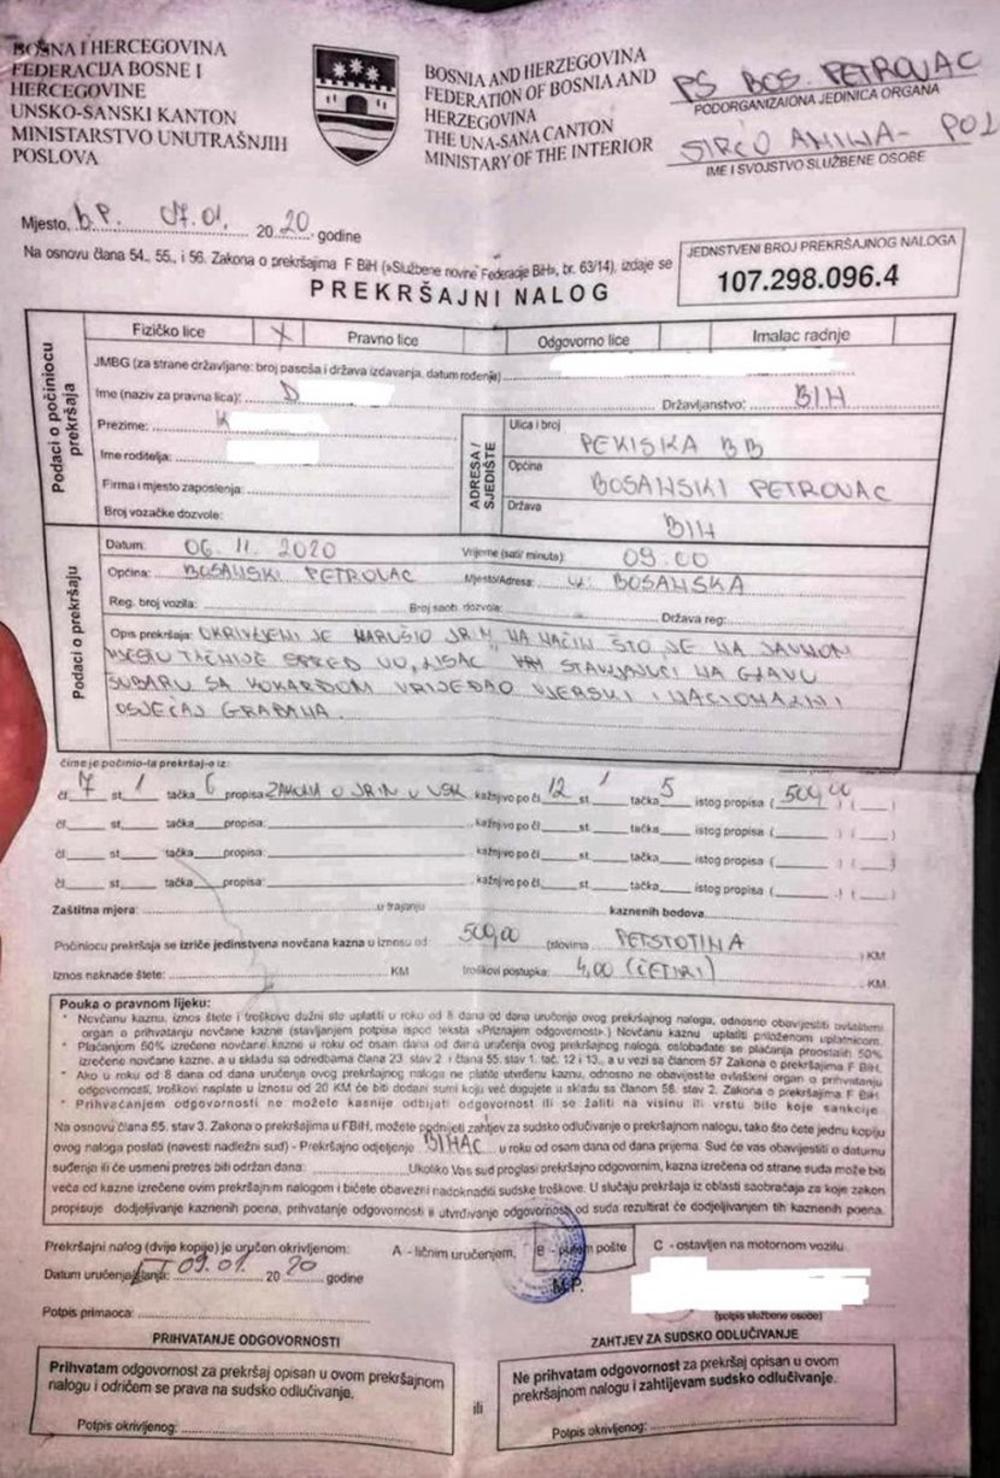 BOSNA I HERCEGOVINA
FEDERACIJA BOSNE I
HERCEGOVINE
UNSKO-SANSKI KANTON
MINISTARSTVO UNUTRAŠNJIH
POSLOVA
BOSNIA AND HERZEGOVINA
FEDERATION OF BOSNIA AND
HERZEGOVINA
THE UNA-SANA CANTON
MINISTRY OF THE INTERIOR
PS BOS. PETROVAC
PODORGANIZAIONA JEDINICA ORGANA
SIRĆO AMINA- POL
IME I SVOJSTVO SLUŽBENE OSOBE
Mjesto, b.P. 07.01. 20 20 godine
Na osnovu člana 54., 55., i 56. Zakona o prekršajima F BiH (»Službene novine Federacije BiH«, br. 63/14), izdaje se
JEDNSTVENI BROJ PREKRŠAJNOG NALOGA
107.298.096.4
PREKRŠAJNI NALOG
Podaci o počiniocu prekršaja
Fizičko lice X Pravno lice Odgovorno lice Imalac radnje
JMBG (za strane državljane: broj pasoša i država izdavanja, datum rođenja)
Ime (naziv za pravna lica): D Državljanstvo: BIH
Prezime: K
Ime roditelja:
Firma i mjesto zaposlenja:
Broj vozačke dozvole:
ADRESA / SJEDIŠTE
Ulica i broj PEKISKA BB
Općina BOSANSKI PETROVAC
Država BIH
Podaci o prekršaju
Datum: 06. 11. 2020 Vrijeme (sati/ minuta): 09.00
Općina: BOSANSKI PETROVAC Mjesto/Adresa: ul. BOSANSKA
Reg. broj vozila: Broj saob. dozvole: Država reg:
Opis prekršaja: OKRIVLJENI JE NARUŠIO JRIM NA NAČIN ŠTO JE NA JAVNOM
MJESTU TAČNIJE ISPRED UO, LISAC STAVLJAJUĆI NA GLAVU
ŠUBARU SA KOKARDOM VRIJEĐAO VJERSKI I NACIONALNI
OSJEĆAJ GRAĐANA.
čime je počinio-la prekršaj-e iz:
čl. 7 st. 1 tačka 6 propisa ZAKONA O JRIM U USK kažnjivo po čl. 12 st. 1 tačka 5 istog propisa ( 500,00 ) ( )
čl. st. tačka propisa: kažnjivo po čl. st. tačka istog propisa ( ) ( )
čl. st. tačka propisa: kažnjivo po čl. st. tačka istog propisa ( ) ( )
čl. st. tačka propisa: kažnjivo po čl. st. tačka istog propisa ( ) ( )
Zaštitna mjera: u trajanju kaznenih bodova
Počiniocu prekršaja se izriče jedinstvena novčana kazna u iznosu od 500,00 (slovima PETSTOTINA ) KM
Iznos naknade štete: KM troškovi postupka: 4,00 (ČETIRI) KM
Pouka o pravnom lijeku:
* Novčanu kaznu, iznos štete i troškove dužni ste uplatiti u roku od 8 dana od dana uručenja ovog prekršajnog naloga, odnosno obavijestiti ovlašteni
organ o prihvatanju novčane kazne (stavljanjem potpisa ispod teksta »Priznajem odgovornost«.) Novčanu kaznu uplatiti priloženom uplatnicom.
* Plaćanjem 50% izrečene novčane kazne u roku od osam dana od dana uručenja ovog prekršajnog naloga, oslobađate se plaćanja preostalih 50%
izrečene novčane kazne, a u skladu sa odredbama člana 23. stav 2. i člana 55. stav 1. tač. 12 i 13., a u vezi sa članom 57 Zakona o prekršajima F BiH.
* Ako u roku od 8 dana od dana uručenja ovog prekršajnog naloga ne platite utvrđenu kaznu, odnosno ne obavijestite ovlašteni organ o prihvatanju
odgovornosti, troškovi naplate u iznosu od 20 KM će biti dodani sumi koju već dugujete u skladu sa članom 58. stav 2. Zakona o prekršajima F BiH.
* Prihvaćanjem odgovornosti ne možete kasnije odbijati odgovornost ili se žaliti na visinu ili vrstu bilo koje sankcije.
Na osnovu člana 55. stav 3. Zakona o prekršajima u FBiH, možete podnijeti zahtjev za sudsko odlučivanje o prekršajnom nalogu, tako što ćete jednu kopiju
ovog naloga poslati (navesti nadležni sud) - Prekršajno odjeljenje BIHAĆ u roku od osam dana od dana prijema. Sud će vas obavijestiti o datumu
suđenja ili će usmeni pretres biti održan dana: Ukoliko Vas sud proglasi prekršajno odgovornim, kazna izrečena od strane suda može biti
veća od kazne izrečene ovim prekršajnim nalogom i bićete obavezni nadoknaditi sudske troškove. U slučaju prekršaja iz oblasti saobraćaja za koje zakon
propisuje dodjeljivanje kaznenih poena, prihvatanje odgovornosti ili utvrđivanje odgovornosti od suda rezultirat će dodjeljivanjem tih kaznenih poena.
Prekršajni nalog (dvije kopije) je uručen okrivljenom: A - ličnim uručenjem, B - putem pošte C - ostavljen na motornom vozilu
Datum uručenja/slanja: 09.01. 20 20 godine
M.P.
(potpis službene osobe)
Potpis primaoca:
PRIHVATANJE ODGOVORNOSTI
Prihvatam odgovornost za prekršaj opisan u ovom prekršajnom
nalogu i odričem se prava na sudsko odlučivanje.
Potpis okrivljenog:
ili
ZAHTJEV ZA SUDSKO ODLUČIVANJE
Ne prihvatam odgovornost za prekršaj opisan u ovom
prekršajnom nalogu i zahtijevam sudsko odlučivanje.
Potpis okrivljenog: